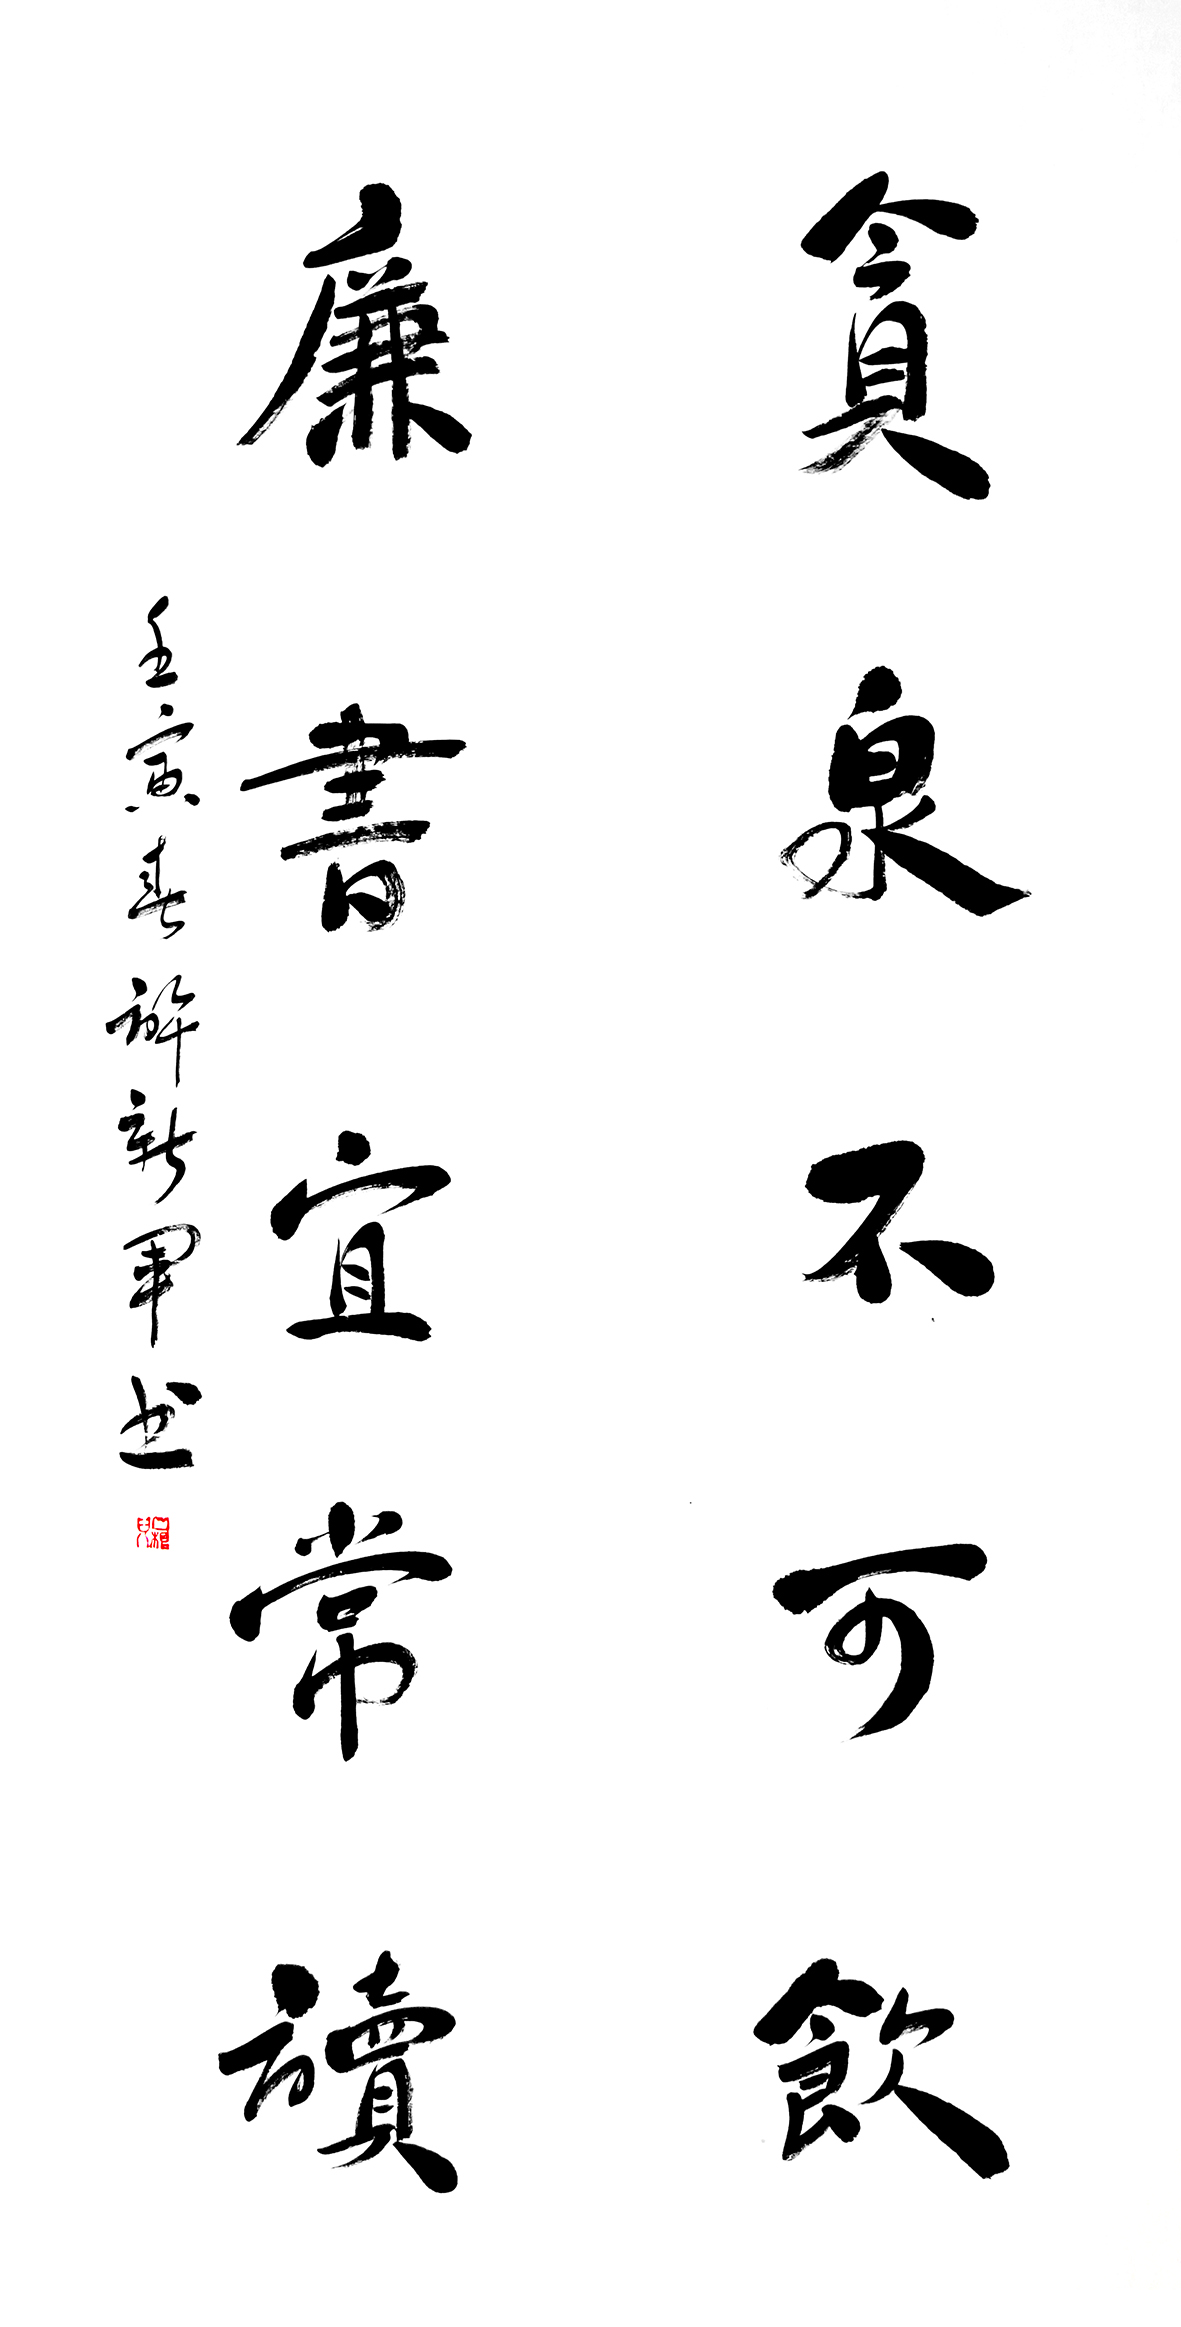 貪泉不可飲
廉書宜常讀
壬寅春許新軍书